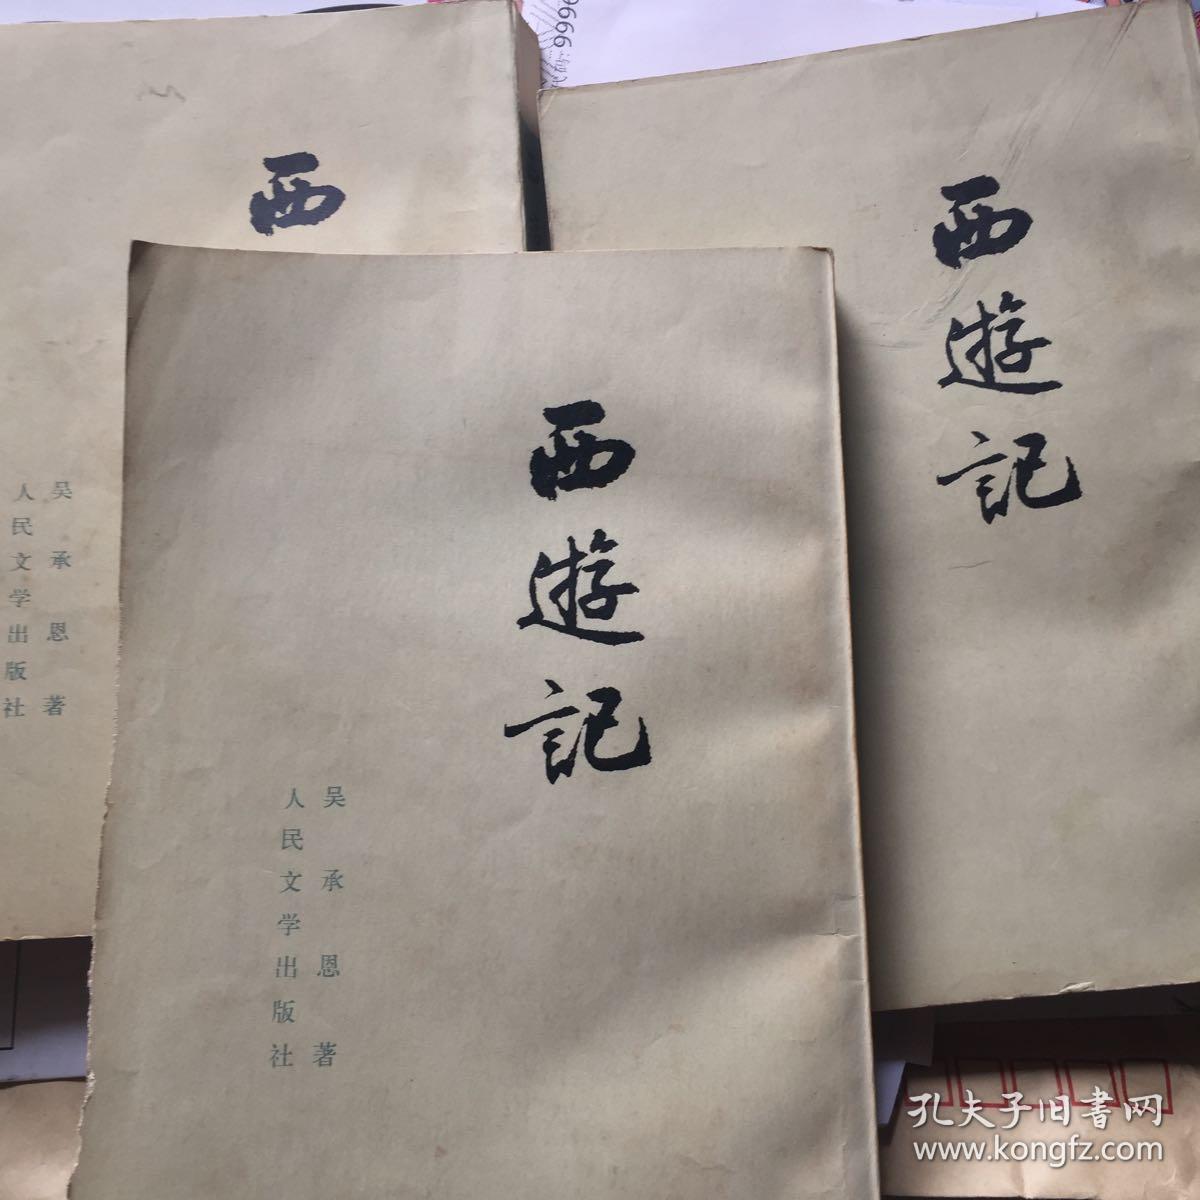 西
吴承恩著
人民文学出版社
西遊記
吴承恩著
人民文学出版社
西遊記
9996
孔夫子旧書网
www.kongfz.com